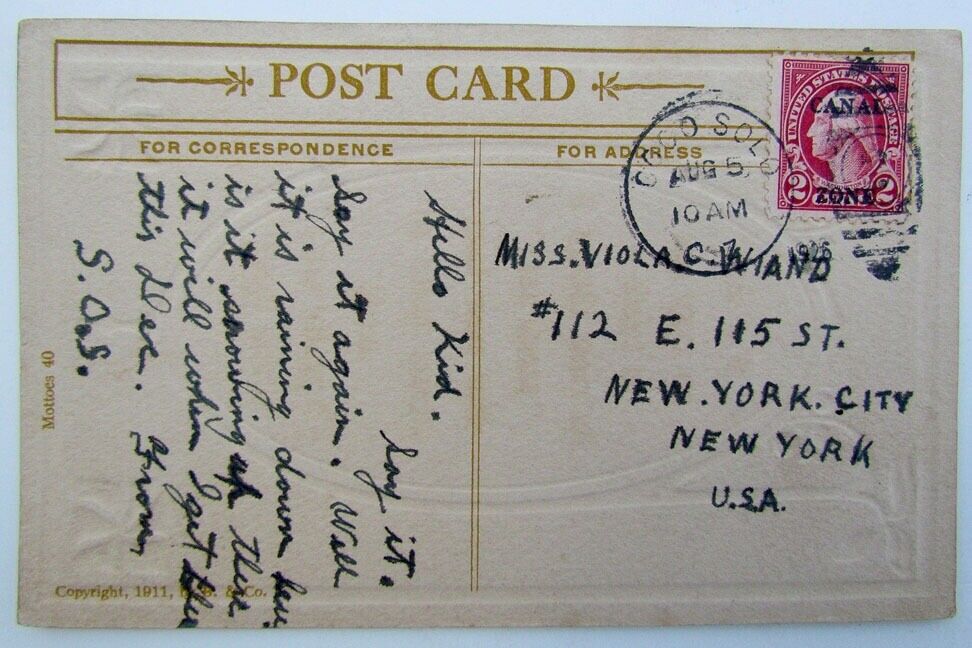 POST CARD
FOR CORRESPONDENCE
FOR ADDRESS
UNITED STATES POSTAGE
CANAL
ZONE
2 2
AUG 5
10 AM
1926
Hello Kid.
Say it.
Say it again. Well
it is raining down
is it snowing up there.
it will when I get
this Dec. From,
S.O.S.
MISS. VIOLA C. WIAND
#112 E. 115 ST.
NEW. YORK. CITY
NEW YORK
U.S.A.
Mottoes 40
Copyright, 1911, & Co.